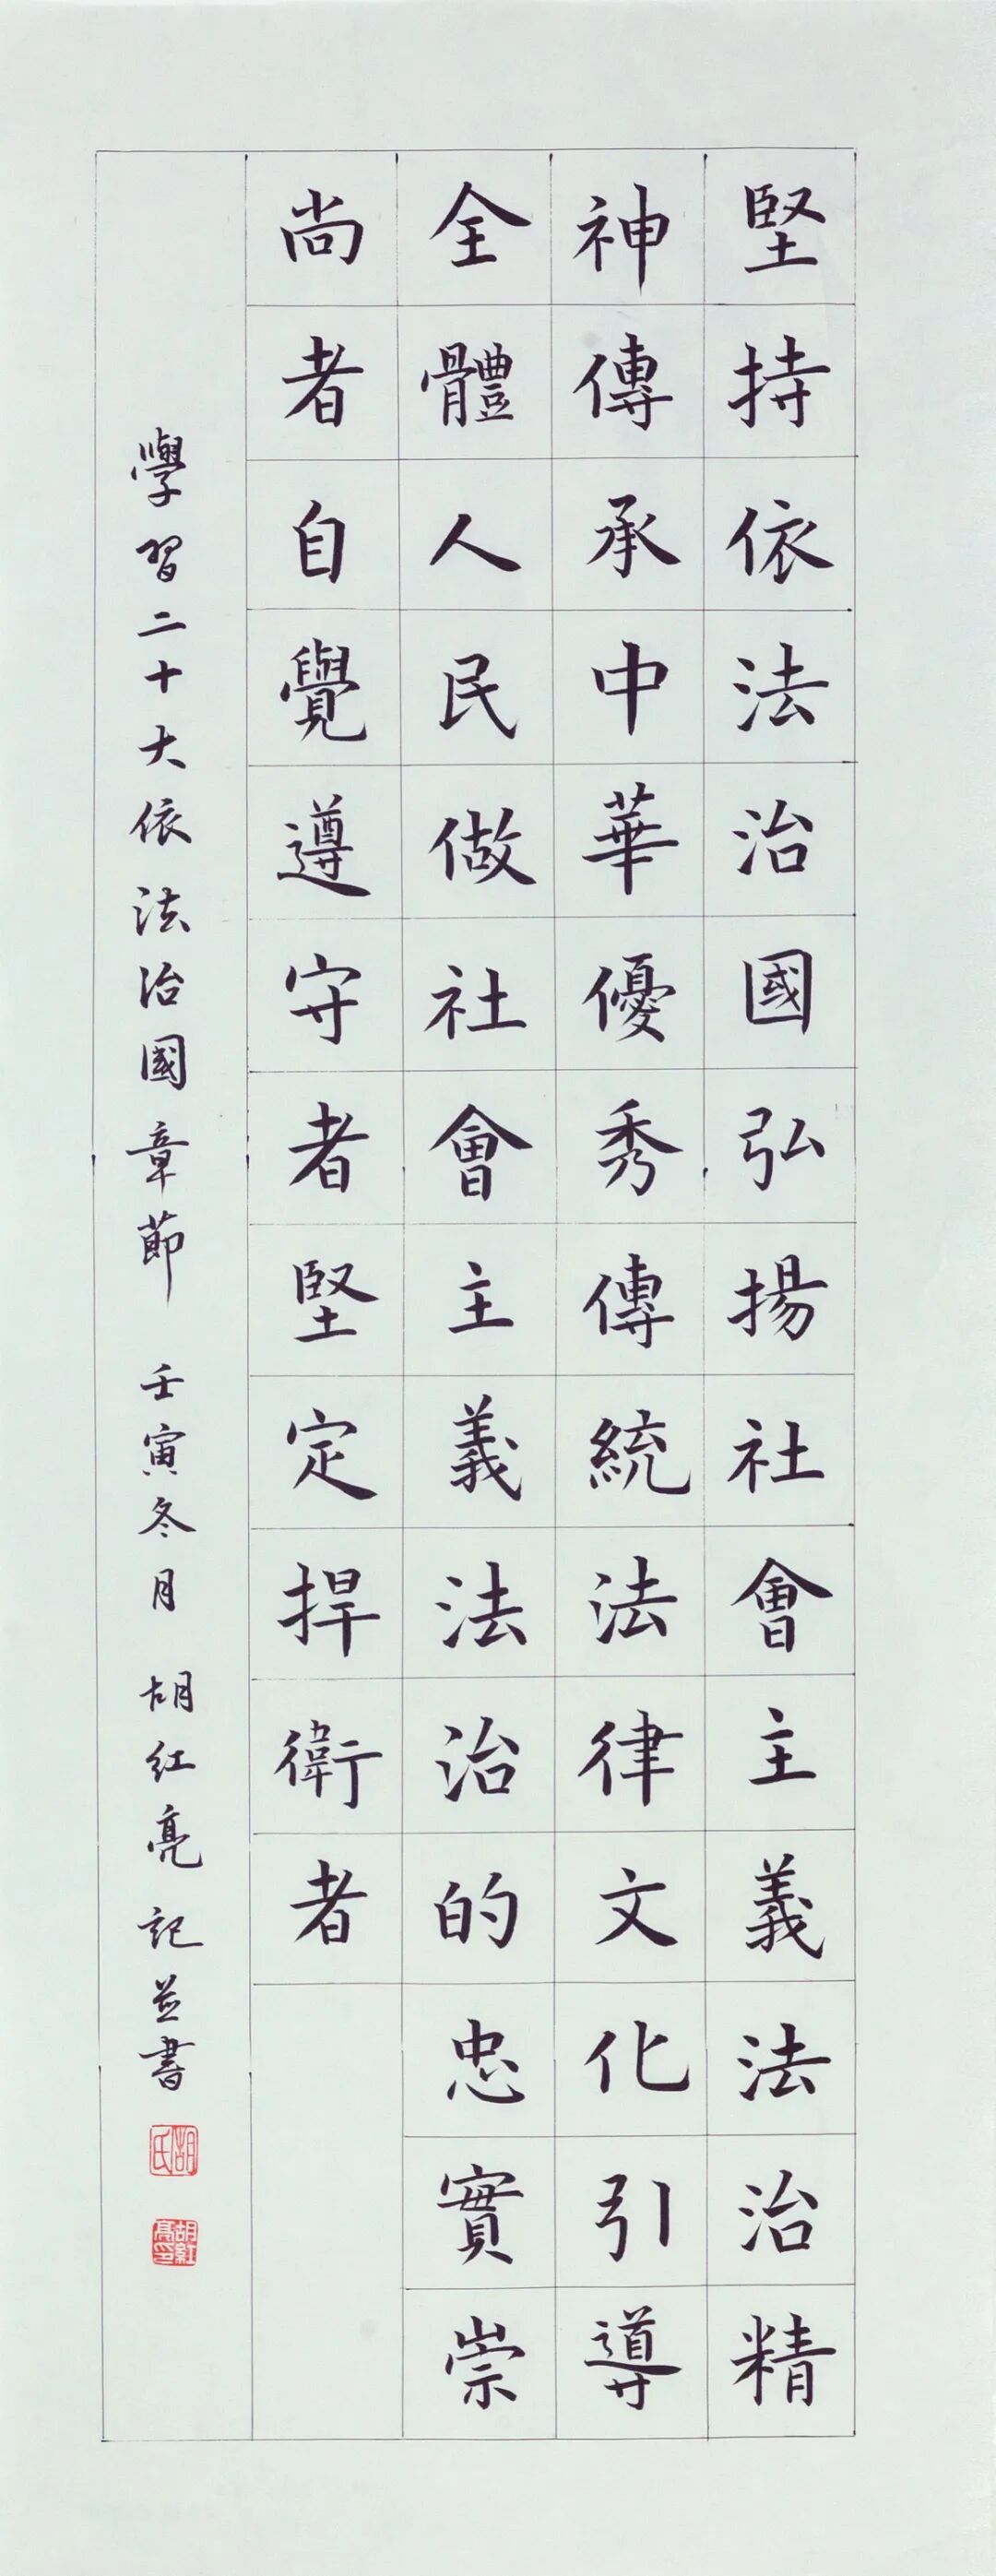 堅持依法治國弘揚社會主義法治精
神傳承中華優秀傳統法律文化引導
全體人民做社會主義法治的忠實崇
尚者自覺遵守者堅定捍衛者
學習二十大依法治國章節 壬寅冬月 胡红亮記並書
胡氏
胡紅亮印